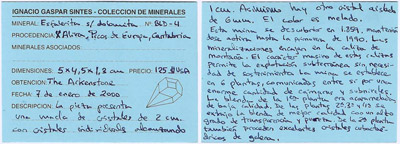 IGNACIO GASPAR SINTES - COLECCION DE MINERALES
MINERAL: Esfalerita s/ dolomita Nº BLD-4
PROCEDENCIA: Aliva, Picos de Europa, Cantabria
MINERALES ASOCIADOS:
DIMENSIONES: 5 x 4,5 x 1,8 cm PRECIO: 125 $USA
OBTENCION: The Arkenstone
FECHA: 7 de enero de 2000
DESCRIPCION: La pieza presenta
una macla de cristales de 2 cm.
con cristales individuales alcanzando
1 cm. Asimismo hay otro cristal aislado
de 6 mm. El color es melado.
Esta mina se descubrió en 1.859, manteniendo
dos activa hasta primeros de 1990. Las
mineralizaciones encajan en la caliza de
montaña. El carácter masivo de estas calizas
permite la explotación subterránea sin necesi-
dad de sostenimiento. La mina se establece
en plantas, comunicadas entre sí por una
enorme cantidad de coladeros y subniveles.
La blenda de la 1ª planta era acaramelada
de baja calidad. De las plantas y 12 se
extraía la blenda de mejor calidad con un alto
grado de transparencia y pureza. De la planta
también proceden excelentes cristales octaé-
dricos de galena.